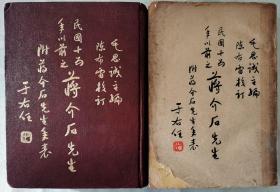 毛思誠主編
陳布雷校訂
民國十五年以前之蔣介石先生
附蔣介石先生年表
于右任
毛思誠主編
陳布雷校訂
民國十五年以前之蔣介石先生
附蔣介石先生年表
于右任